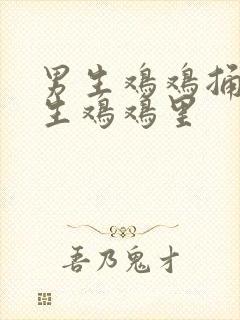 男生鸡鸡捅
生鸡鸡里
吾乃鬼才